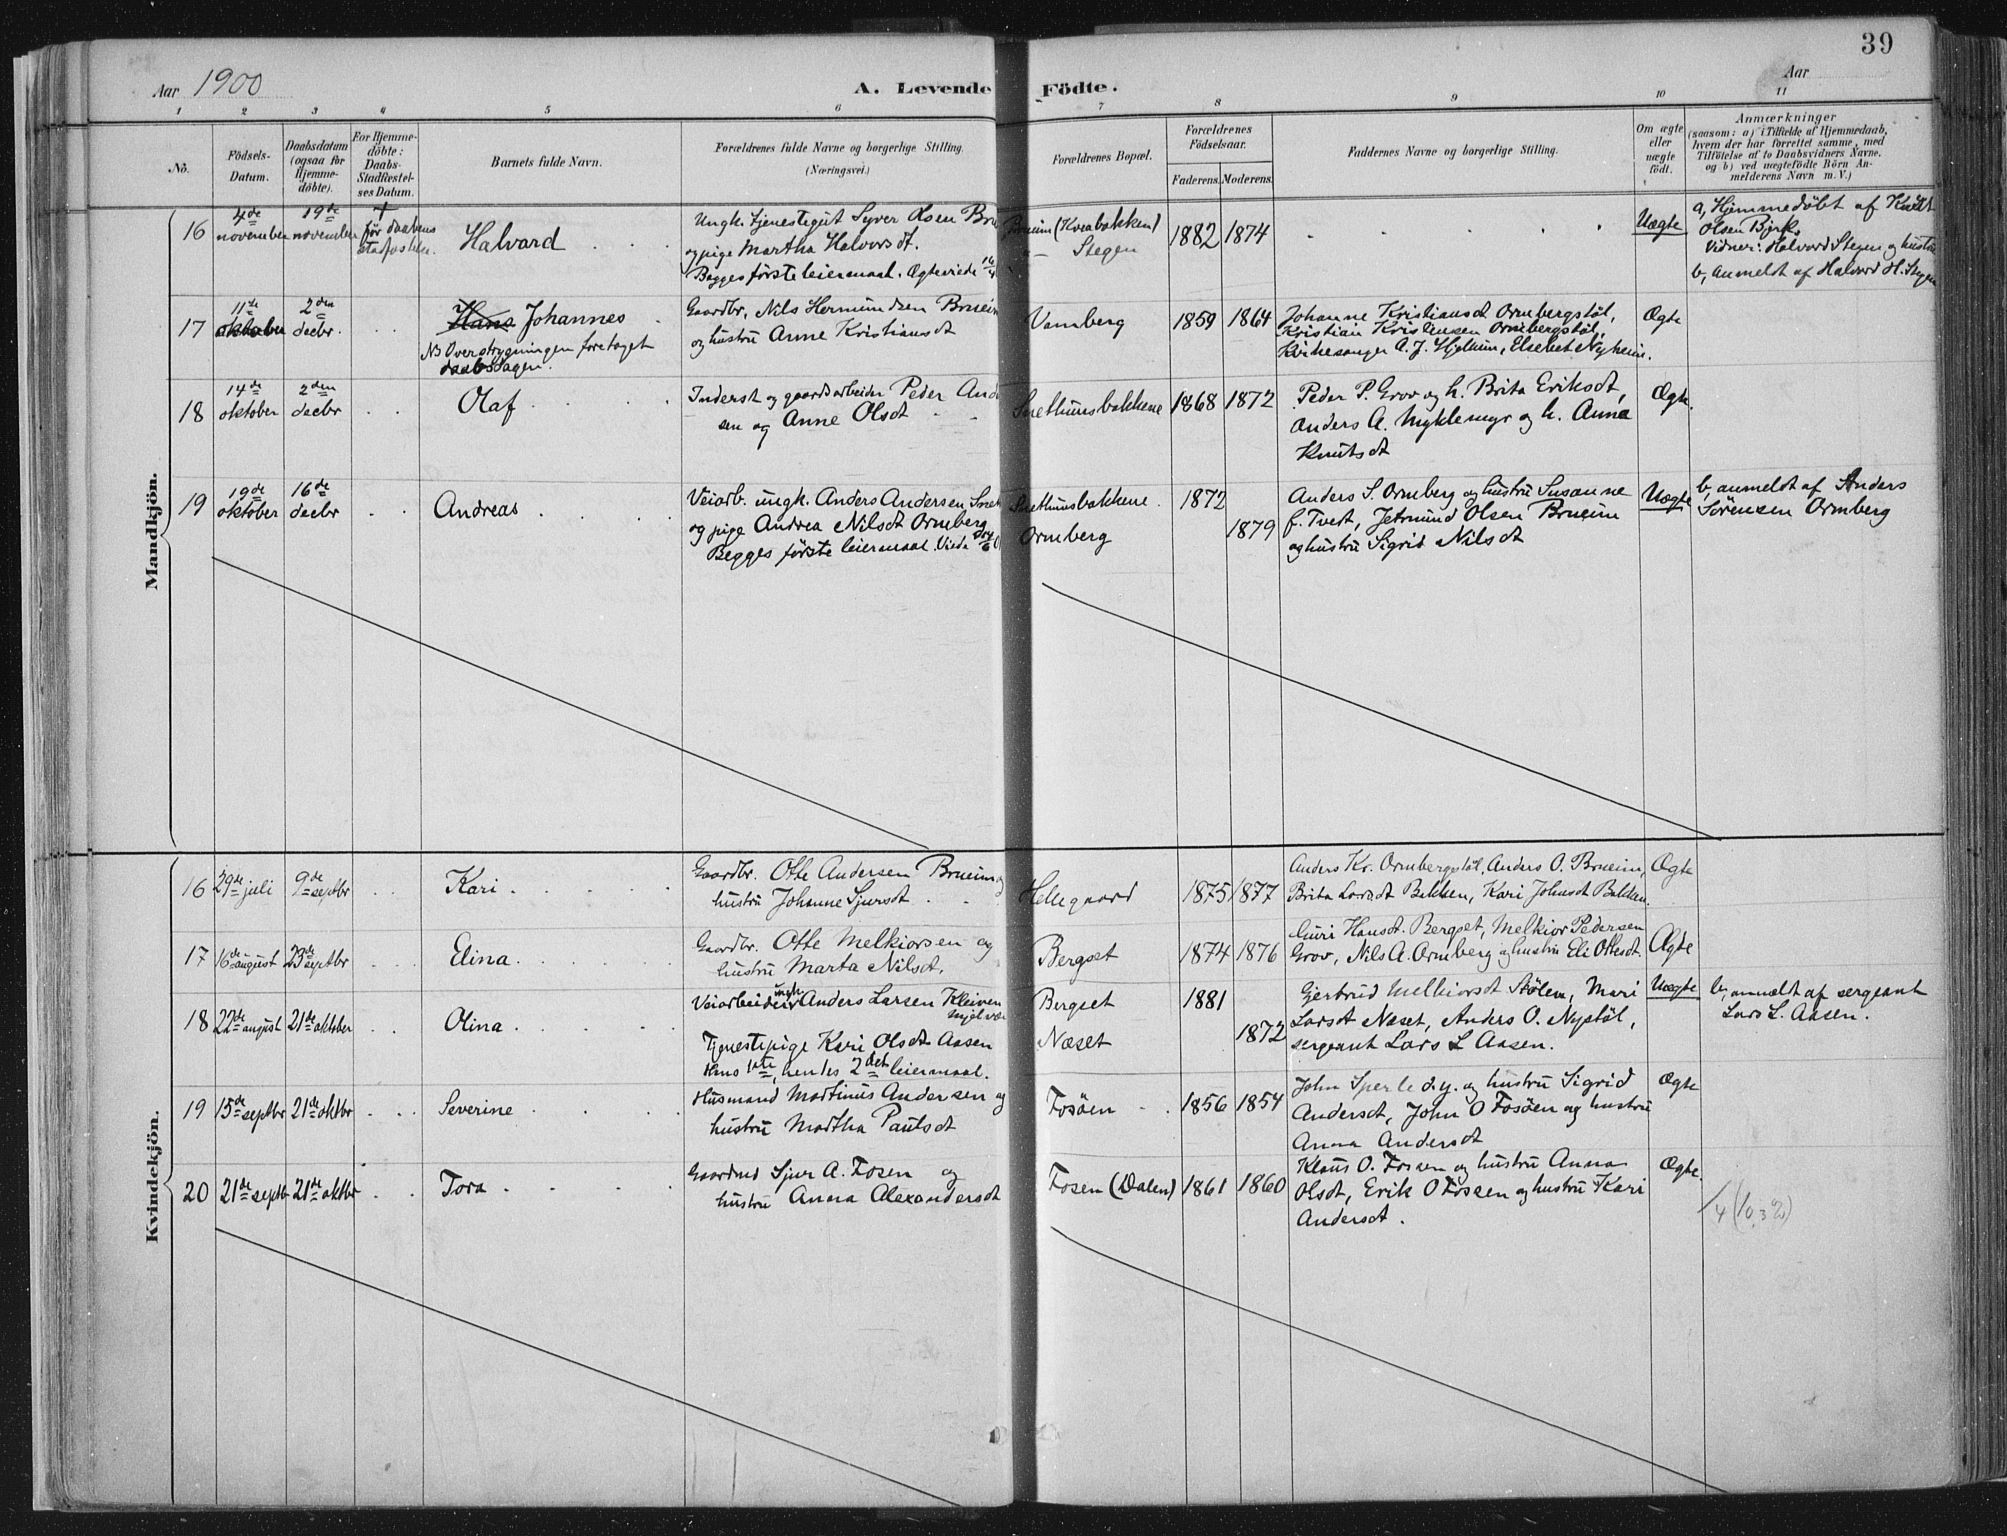 39
Aar 1900
A. Levende Födte.
Aar
1 2 3 4 5 6 7 8 9 10 11
No.
Födsels-Datum.
Daabsdatum (ogsaa for Hjemme-döbte).
For Hjemme-döbte: Daabs-Stadfæstel-ses Datum.
Barnets fulde Navn.
Forældrenes fulde Navne og borgerlige Stilling. (Næringsvei.)
Forældrenes Bopæl.
Forældrenes Födselsaar.
Faderens. Moderens.
Faddernes Navne og borgerlige Stilling.
Om ægte eller uægte födt.
Anmærkninger
(saasom: a) i Tilfælde af Hjemmedaab,
hvem der har forrettet samme, med
Tilföielse af to Daabsvidners Navne.
og b) ved uægtefödte Börn An-
melderens Navn m. V.)
Mandkjön.
16 4de november 19de november † før daabens Halvard
Ungk. tjenestegut Syver Olsen
og pige Martha Halvorsdt.
Begges første leiermaal. Ægteviede
Brueim (Kvæbakken)
"— Stegen
1882 1874
Uægte
a, Hjemmedøbt af Knut
Olsen Bjerk.
Vidner: Halvord Stegen og hustru
b, anmeldt af Halvord H. Stegen
17 11te oktober 2den decbr. Hans Johannes
NB Overstrygningen foretaget
daabsdagen.
Gaardbr. Nils Hermundsen Brueim
og hustru Anne Kristiansdt
Vamberg 1859 1864
Johanne Kristiansdt Ormbergstøl,
Kristian Kristensen Ormbergstøl,
Kirkesanger A. J. Hjellum, Elsebet Nyheim.
Ægte
18 14de oktober 2den decbr Olaf
Inderst og gaardsarbeider Peder Ander
sen og Anne Olsdt
Snethunsbakkene 1868 1872
Peder P. Grov og h. Brita Eriksdt,
Anders A. Myklemyr og h. Anna
Knutsdt
Ægte.
19 19de oktober 16de decbr Andreas
Veiarb. ungk. Anders Andersen
og pige Andrea Nilsdt Ormberg
Begges første leiermaal.
Snethunsbakkene
Ormberg
1872
1879
Anders S. Ormberg og hustru Susanne
f. Tvedt, Jetmund Olsen Brueim
og hustru Sigrid Nilsdt
Uægte
b, anmeldt af Anders
Sörensen Ormberg
Kvindekjön.
16 29de juli 9de septbr Kari
Gaardbr. Otte Andersen Brueim og
hustru Johanne Sjursdt
Hellegaard 1875 1877
Anders Kr. Ormbergstøl, Anders O. Brueim,
Brita Larsdt Bakken, Kari Johnsdt Bakken.
Ægte
17 16de august 23de septbr Elina
Gaardbr. Otte Melkiorsen og
hustru Marta Nilsdt.
Bergset 1874 1876
Guri Hansdt. Bergset, Melkior Pedersen
Grov, Nils A. Ormberg og hustru Eli Ottesdt.
Ægte
18 22de august 21de oktober Olina
Veiarbeider ungk. Anders Larsen Kleiven
Tjenestepige Kari Olsdt Aasen
Hans 1ste, hendes 2det leiermaal.
Bergset
Næset
1881
1872
Gjertrud Melkiorsdt Stølen, Mari
Larsdt Næset, Anders O. Nystøl,
sergeant Lars L Aasen.
Uægte
b, anmeldt af sergeant
Lars L. Aasen.
19 15de septbr 21de oktbr Severine
Husmand Martinus Andersen og
hustru Martha Paulsdt
Fosøen 1856 1854
John Sperle d.y. og hustru Sigrid
Andersdt, John O Fosøen og hustru
Anna Andersdt
Ægte
20 21de septbr 21de oktbr Tora
Gaardmd Sjur A. Fosen og
hustru Anna Alexandersdt
Fosen (Dalen) 1861 1860
Klaus O. Fossen og hustru Anna
Olsdt, Erik O Fossen og hustru Kari
Andersdt.
Ægte.